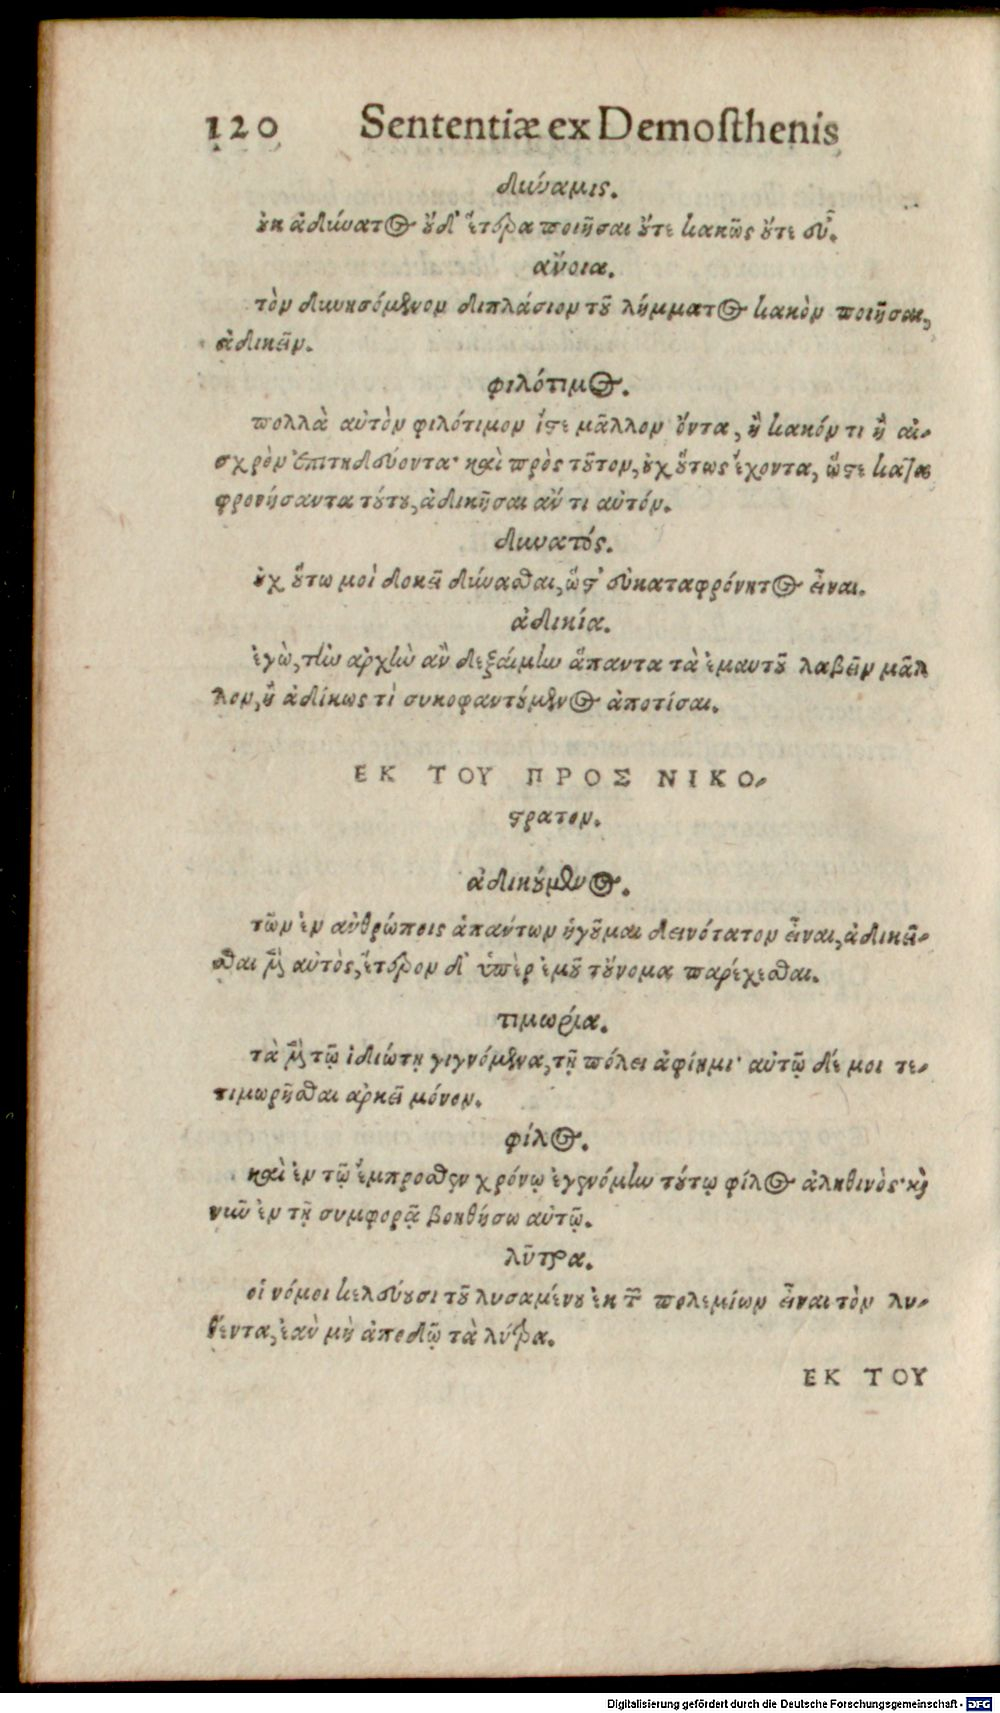 120 Sententiæ ex Demosthenis
δύναμις.
οὐκ ἀδύνατος οὐδ' ἕτερα ποιῆσαι οὔτε κακῶς οὔτε εὖ.
ἄνοια.
τὸν δυνησόμενον διπλάσιον τοῦ λήμματος κακὸν ποιῆσαι,
ἀδικεῖν.
φιλότιμος.
πολλὰ αὐτὸν φιλότιμον ἴστε μᾶλλον ὄντα, ἢ κακόν τι ἢ αἰ-
σχρὸν ἐπιτηδεύοντα· καὶ πρὸς τοῦτον, οὐχ οὕτως ἔχοντα, ὥστε κατα
φρονήσαντα τούτου, ἀδικῆσαι ἄν τι αὐτόν.
δυνατός.
οὐχ οὕτω μοὶ δοκεῖ δύνασθαι, ὥστ' εὐκαταφρόνητος εἶναι.
ἀδικία.
ἐγὼ, τὴν ἀρχὴν ἂν δεξαίμην ἅπαντα τὰ ἐμαυτοῦ λαβεῖν μᾶλ
λον, ἢ ἀδίκως τὶ συκοφαντούμενος ἀποτίσαι.
ΕΚ ΤΟΥ ΠΡΟΣ ΝΙΚΟ-
στρατον.
ἀδικούμενος.
τῶν ἐν ἀνθρώποις ἁπάντων ἡγοῦμαι δεινότατον εἶναι, ἀδικεῖ-
σθαι μὲν αὐτὸς, ἕτερον δ' ὑπὲρ ἐμοῦ τοὔνομα παρέχεσθαι.
τιμωρία.
τὰ μὲν τῷ ἰδιώτῃ γιγνόμενα, τῇ πόλει ἀφίημι· αὐτῷ δέ μοι τε-
τιμωρῆσθαι ἀρκεῖ μόνον.
φίλος.
καὶ ἐν τῷ ἔμπροσθεν χρόνῳ ἐγενόμην τούτῳ φίλος ἀληθινὸς· καὶ
νῦν ἐν τῇ συμφορᾷ βοηθήσω αὐτῷ.
λῦτρα.
οἱ νόμοι κελεύουσι τοῦ λυσαμένου ἐκ τῶν πολεμίων εἶναι τὸν λυ-
θέντα, ἐὰν μὴ ἀποδῷ τὰ λύτρα.
ΕΚ ΤΟΥ
Digitalisierung gefördert durch die Deutsche Forschungsgemeinschaft - DFG